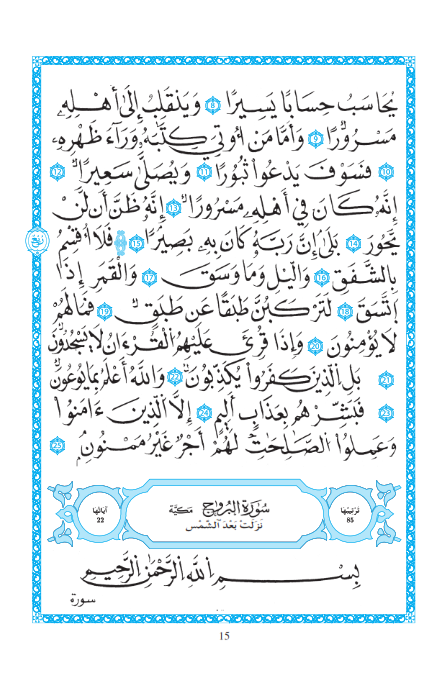 يُحَاسَبُ حِسَابًا يَسِيرًا 8 وَيَنقَلِبُ إِلَىٰ أَهْلِهِۦ
مَسْرُورًا 9 وَأَمَّا مَنْ أُوتِيَ كِتَٰبَهُۥ وَرَآءَ ظَهْرِهِۦ
10 فَسَوْفَ يَدْعُواْ ثُبُورًا 11 وَيُصَلَّىٰ سَعِيرًا 12
إِنَّهُۥ كَانَ فِي أَهْلِهِۦ مَسْرُورًا 13 إِنَّهُۥ ظَنَّ أَن لَّنْ
يَحُورَ 14 بَلَىٰ إِنَّ رَبَّهُۥ كَانَ بِهِۦ بَصِيرًا 15 فَلَا أُقْسِمُ
بِالشَّفَقِ 16 وَالَّيْلِ وَمَا وَسَقَ 17 وَالْقَمَرِ إِذَا
اتَّسَقَ 18 لَتَرْكَبُنَّ طَبَقًا عَن طَبَقٍ 19 فَمَا لَهُمْ
لَا يُؤْمِنُونَ 20 وَإِذَا قُرِئَ عَلَيْهِمُ الْقُرْءَانُ لَا يَسْجُدُونَ
21 بَلِ الَّذِينَ كَفَرُواْ يُكَذِّبُونَ 22 وَاللَّهُ أَعْلَمُ بِمَا يُوعُونَ
23 فَبَشِّرْهُم بِعَذَابٍ أَلِيمٍ 24 إِلَّا الَّذِينَ ءَامَنُواْ
وَعَمِلُواْ الصَّٰلِحَٰتِ لَهُمْ أَجْرٌ غَيْرُ مَمْنُونٍ 25
تَرْتِيبُهَا 85 سُورَةُ الْبُرُوجِ مَكِّيَّة آيَاتُهَا 22
نَزَلَتْ بَعْدَ الشَّمْسِ
بِسْمِ اللَّهِ الرَّحْمَٰنِ الرَّحِيمِ
سورة
15